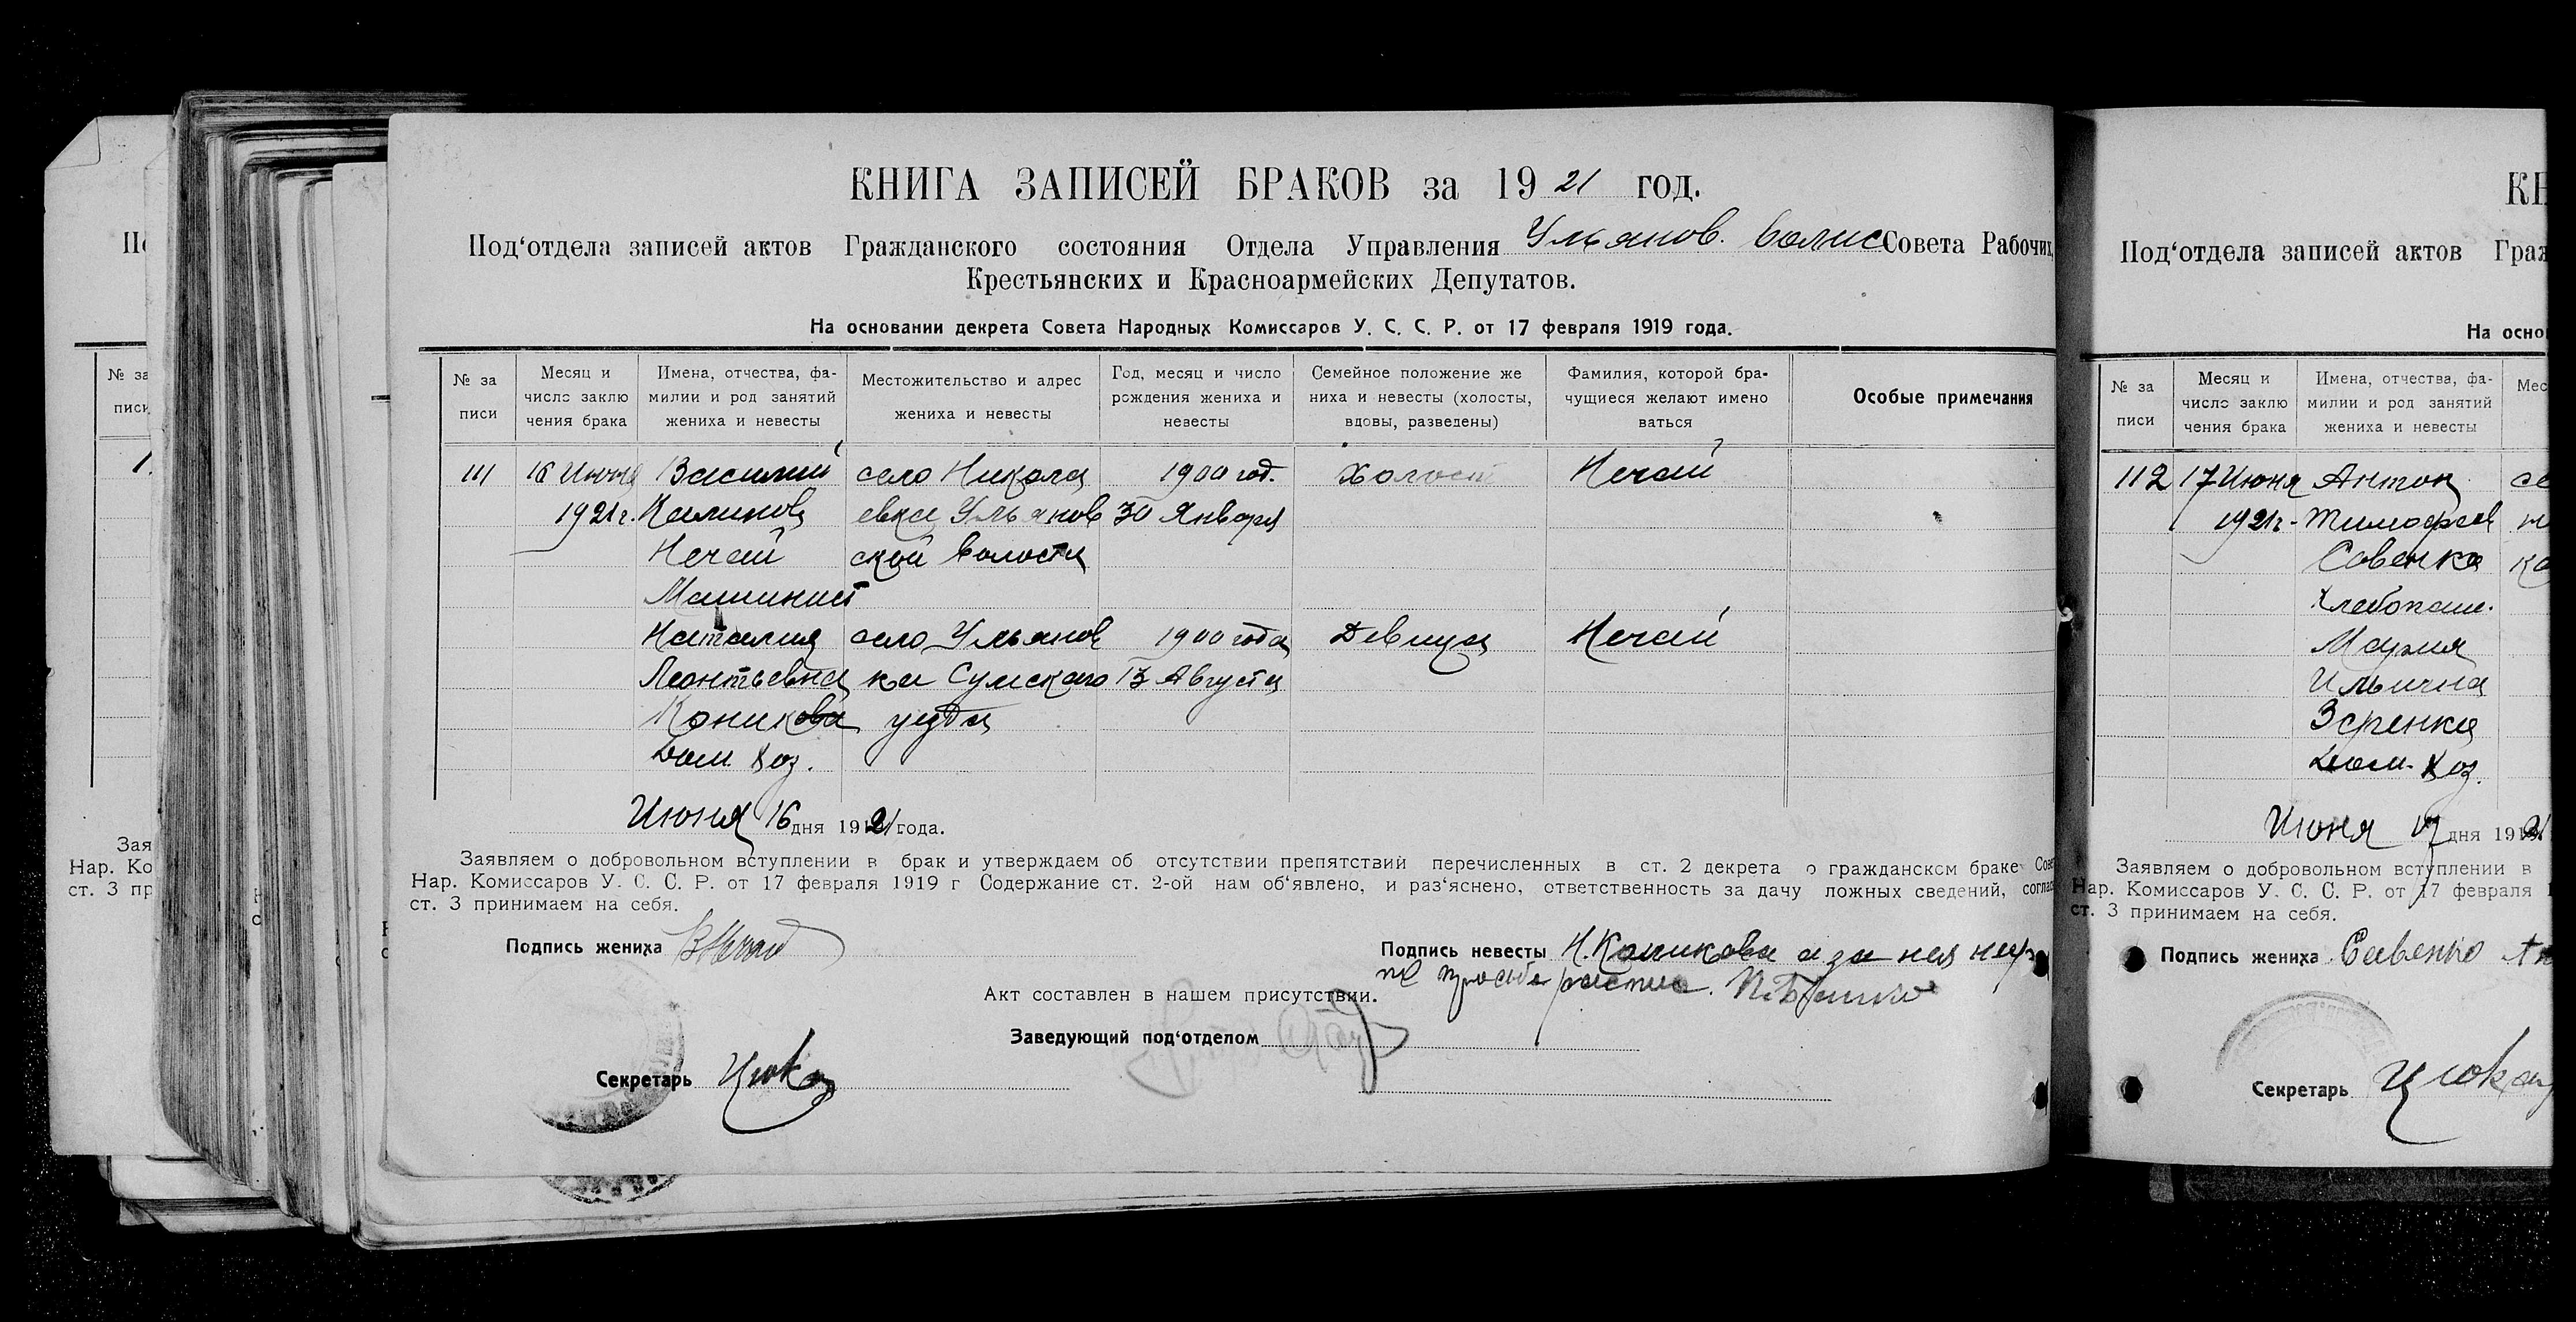 КНИГА ЗАПИСЕЙ БРАКОВ за 1921 год.
Под‘отдела записей актов Гражданского состояния Отдела Управления Ульянов. волис Совета Рабочих,
Крестьянских и Красноармейских Депутатов.
На основании декрета Совета Народных Комиссаров У. С. С. Р. от 17 февраля 1919 года.
№ за
писи
Месяц и
число заклю
чения брака
Имена, отчества, фа-
милии и род занятий
жениха и невесты
Местожительство и адрес
жениха и невесты
Год, месяц и число
рождения жениха и
невесты
Семейное положение же
ниха и невесты (холосты,
вдовы, разведены)
Фамилия, которой бра-
чущиеся желают имено
ваться
Особые примечания
111 16 Июня Василий село Никола 1900 год. Холост Нечай
1921 г. Калинов евка Ульянов 30 Января
Нечай ской волости
Машинист
Наталия село Ульянов 1900 года Девица Нечай
Леонтьевна ка Сумского 13 Августа
Коникова уезда
Дом. Хоз.
Июня 16 дня 1921 года.
Заявляем о добровольном вступлении в брак и утверждаем об отсутствии препятствий перечисленных в ст. 2 декрета о гражданском браке Сове
Нар. Комиссаров У. С. С. Р. от 17 февраля 1919 г Содержание ст. 2-ой нам об‘явлено, и раз‘яснено, ответственность за дачу ложных сведений, соглас
ст. 3 принимаем на себя.
Подпись жениха В Нечай
Подпись невесты Н. Коникова а за нея негр
по просьбе распис.
Акт составлен в нашем присутствии.
Заведующий под‘отделом
Секретарь Цюка
КН
Под‘отдела записей актов Граж
На осно
№ за
писи
Месяц и
число заклю
чения брака
Имена, отчества, фа-
милии и род занятий
жениха и невесты
Мес
112 17 Июня Антон се
1921 г. Тимофеев
Совенко ка
Хлебопаш.
Мария
Ильична
Зеренка
Дом. Хоз.
Июня 17 дня 1921
Заявляем о добровольном вступлении в
Нар. Комиссаров У. С. С. Р. от 17 февраля
ст. 3 принимаем на себя.
Подпись жениха Савенко
Секретарь Цюка
№ за
писи
Зая
Нар. Ко
ст. 3 пр